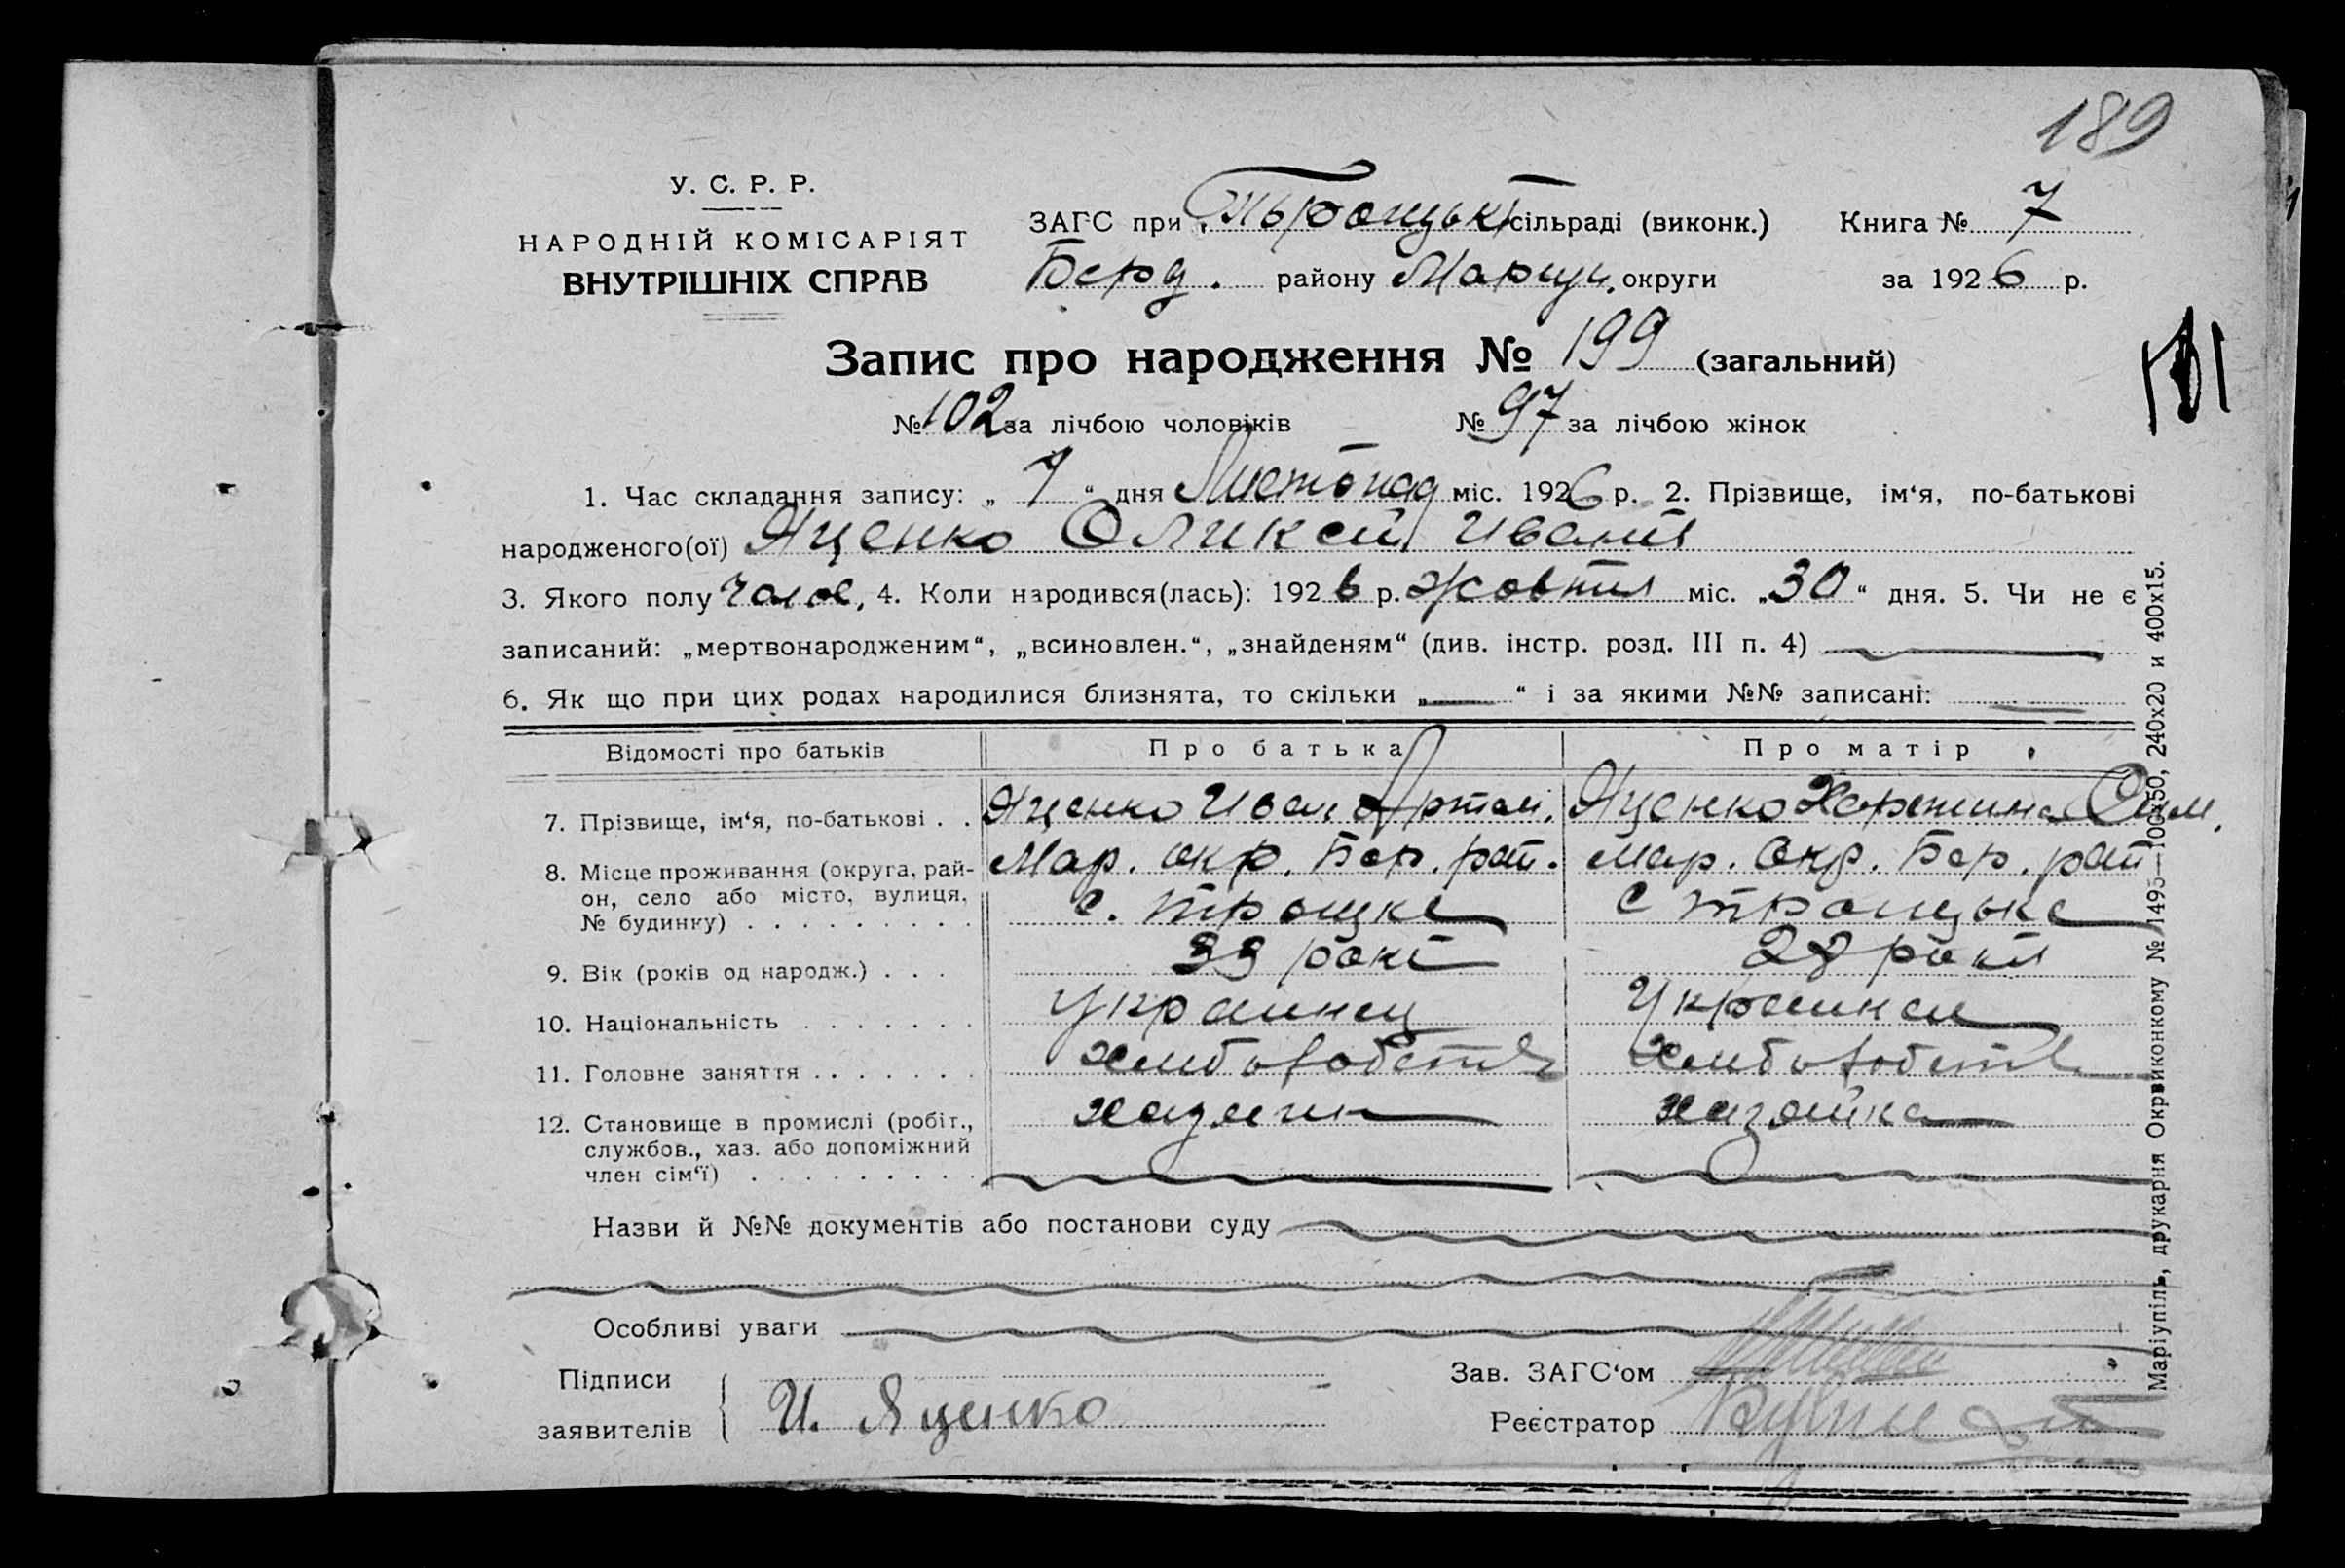 189
У. С. Р. Р.
НАРОДНІЙ КОМІСАРІЯТ
ВНУТРІШНІХ СПРАВ
ЗАГС при сільраді (виконк.) Книга № 7
Берд. району Мариуп. округи за 1926 р.
Запис про народження № 199 (загальний)
№ 102 за лічбою чоловіків № 97 за лічбою жінок
1. Час складання запису: „ 7 “ дня Листопад міс. 1926 р. 2. Прізвище, ім‘я, по-батькові
народженого(ої) Яценко Оликсей Ивания
3. Якого полу 4. Коли народився(лась): 1926 р. жовтня міс. „30“ дня. 5. Чи не є
записаний: „мертвонародженим“, „всиновлен.“, „знайденям“ (див. інстр. розд. III п. 4)
6. Як що при цих родах народилися близнята, то скільки „ “ і за якими №№ записані:
Відомості про батьків Про батька Про матір
7. Прізвище, ім‘я, по-батькові . . Яценко Иван Артем. Яценко
8. Місце проживання (округа, рай- Мар. окр. Бер. рай. Мар. Окр. Бер. рай
он, село або місто, вулиця, с. троцке с троцьке
№ будинку) . . . . . . . . .
9. Вік (років од народж.) . . . 33 рокі 28 рокія
10. Національність . . . . . . . Украинец Украинка
11. Головне заняття . . . . . . .
12. Становище в промислі (робіт., хазяин хазяйка
службов., хаз. або допоміжний
член сім‘ї) . . . . . . . . .
Назви й №№ документів або постанови суду
Особливі уваги
Підписи Зав. ЗАГС‘ом
заявителів И. Яценко Реєстратор
Маріупіль, друкарня Окрвиконкому № 1495—100х50, 240х20 и 400х15.